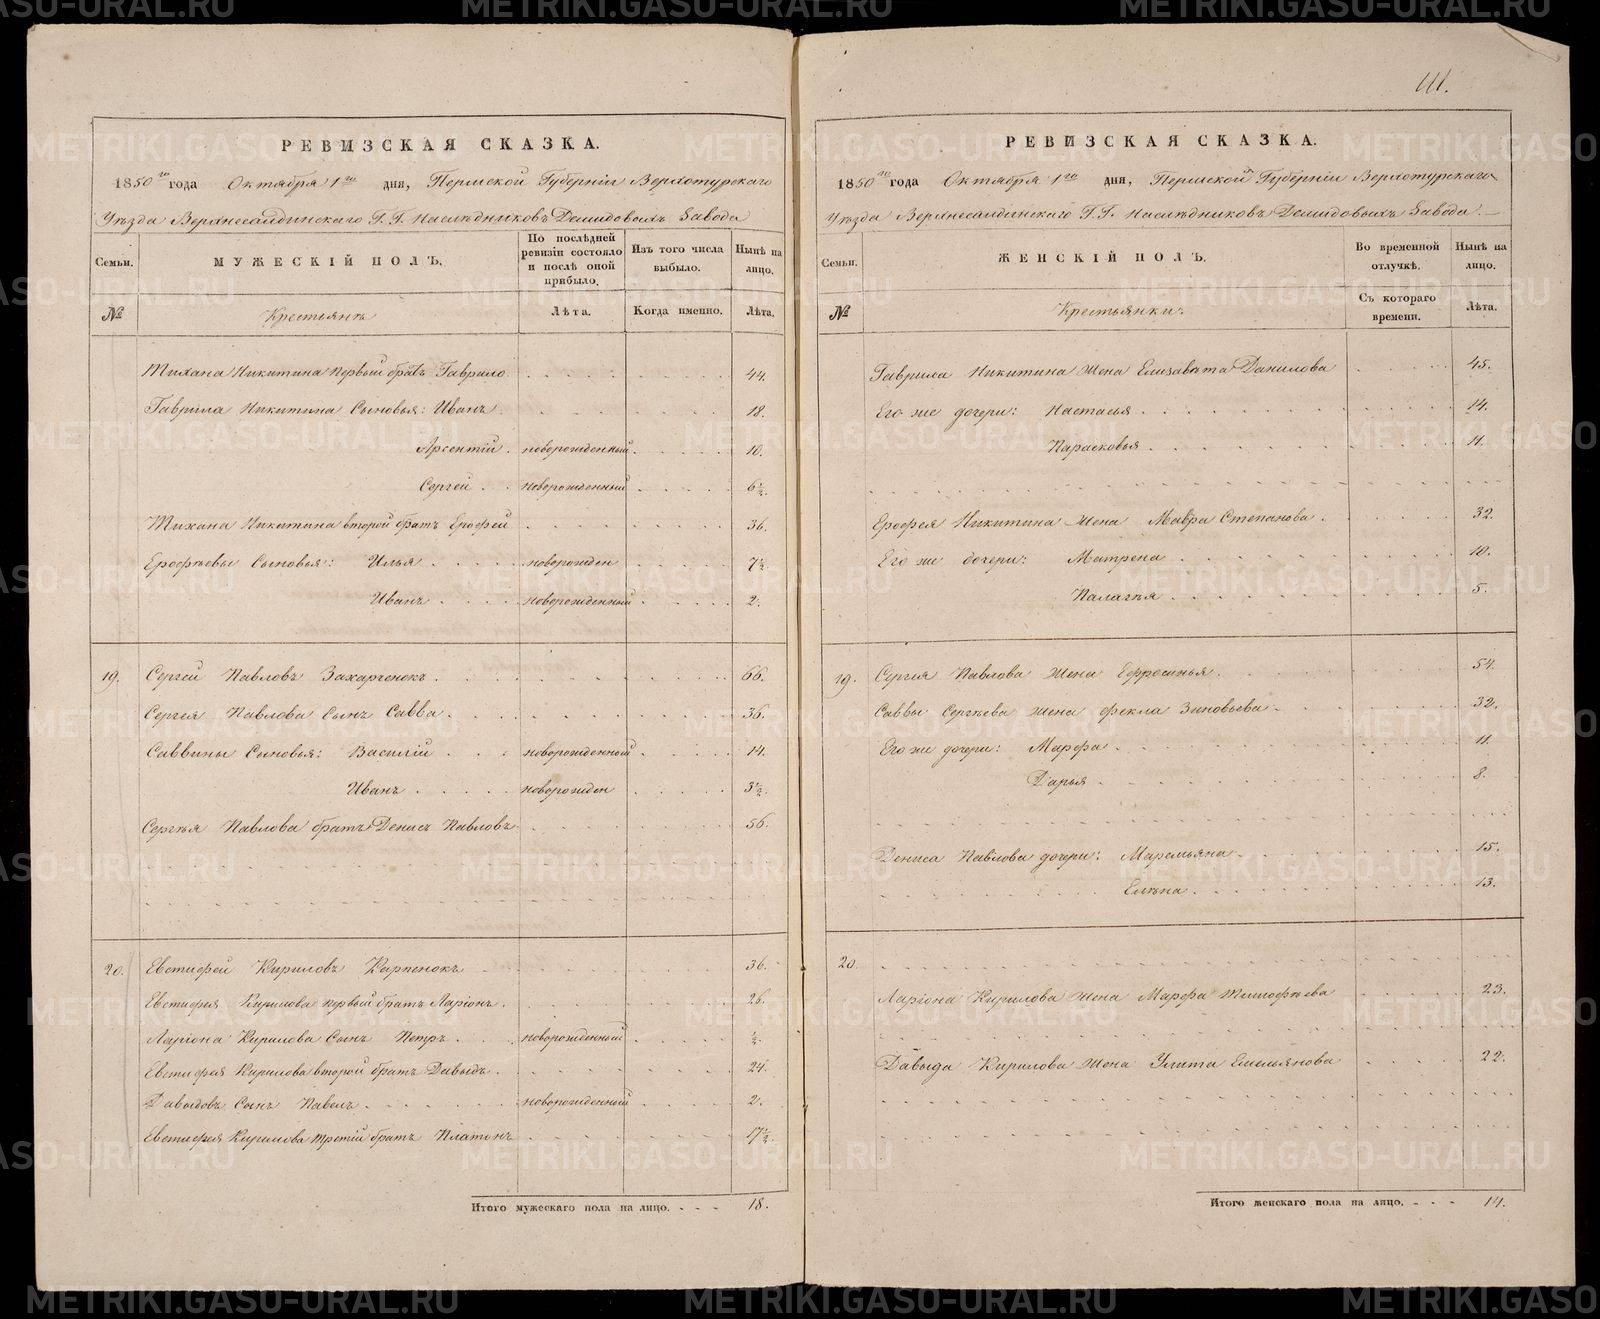 111.
РЕВИЗСКАЯ СКАЗКА.
1850го года Октября 1го дня, Пермской Губернiи Верхотурскаго
Уѣзда Верхнесалдинскаго Г.Г. Наслѣдниковъ Демидовыхъ Завода
Семьи. МУЖЕСКIЙ ПОЛЪ. По послѣдней ревизiи состояло и послѣ оной прибыло. Изъ того числа выбыло. Нынѣ на лицо.
№ Крестьянъ Лѣта. Когда именно. Лѣта.
Никитина первый братъ Гаврило 44.
Гаврила Никитина Сыновья: Иванъ 18.
Арсентiй новорожденный 10.
Сергей новорожденный 6½.
Никитина второй братъ Ерофей 36.
Ерофѣевы Сыновья: Илья новорожден 7½
Иванъ новорожденный 2.
19. Сергей Павловъ Захарченокъ 66.
Сергея Павлова Сынъ Савва 36.
Саввины Сыновья: Василiй новорожденный 14.
Иванъ новорожден 3½.
Сергѣя Павлова братъ Денисъ Павловъ 56.
20. Евстифей Кириловъ Карпенокъ 36.
Евстифея Кирилова первый братъ Ларiонъ 26.
Ларiона Кирилова Сынъ Петръ новорожденный ½.
Евстифея Кирилова второй братъ Давыдъ 24.
Давыдовъ Сынъ Павелъ новорожденный 2.
Евстифея Кирилова третiй братъ Платонъ 17½.
Итого мужескаго пола на лицо. 18.
РЕВИЗСКАЯ СКАЗКА.
1850го года Октября 1го дня, Пермской Губернiи Верхотурскаго
Уѣзда Верхнесалдинскаго Г.Г. Наслѣдниковъ Демидовыхъ Завода.
Семьи. ЖЕНСКIЙ ПОЛЪ. Во временной отлучкѣ. Нынѣ на лицо.
№ Крестьянки Съ котораго времени. Лѣта.
Гаврила Никитина Жена Елизавета Данилова 45.
Его же дочери: Настасья 14.
Парасковья 11.
Ерофея Никитина Жена Мавра Степанова 32.
Его же дочери: Матрена 10.
Палагѣя 5.
19. Сергея Павлова Жена Ефросинья 54.
Саввы Сергѣева Жена Фекла Зиновьева 32.
Его же дочери: Марфа 11.
Дарья 8.
Дениса Павлова дочери: Маремьяна 15.
Елѣна 13.
20.
Ларiона Кирилова Жена Марфа Тимофѣева 23.
Давыда Кирилова Жена Улита Емельянова 22.
Итого женскаго пола на лицо. 14.
METRIKI.GASO-URAL.RU